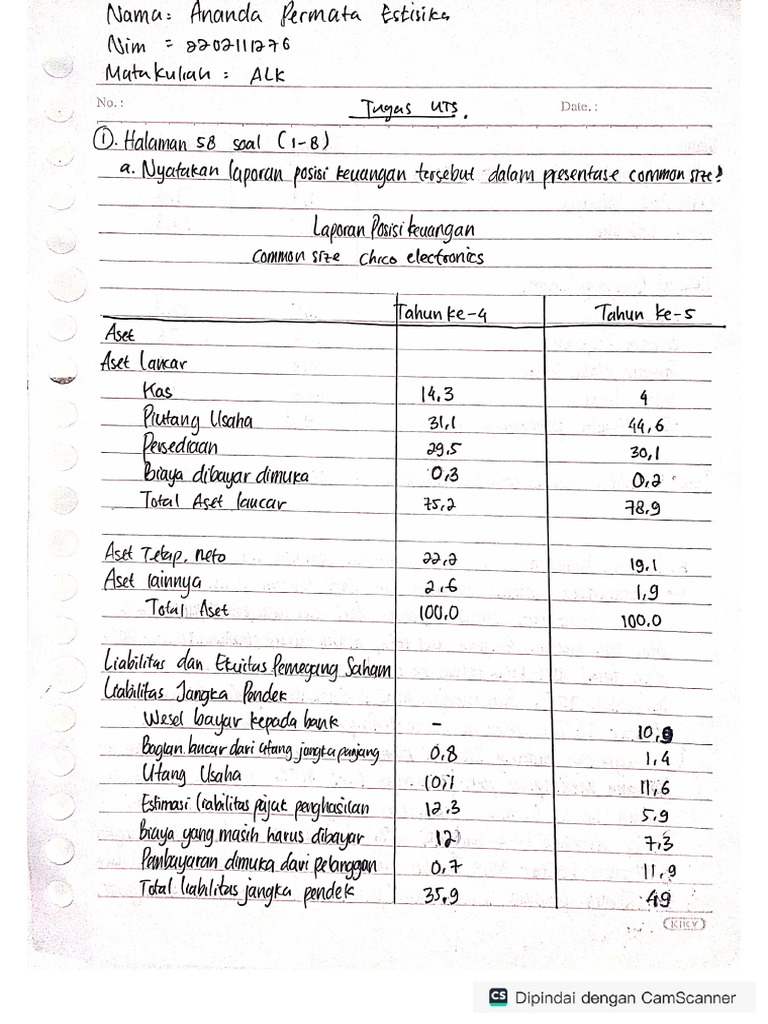 Nama: Ananda Permata Estisika
Nim = 2202111276
Mata kuliah : ALK
No. :
Tugas UTS.
Date. :
①. Halaman 58 soal (1-8)
a. Nyatakan laporan posisi keuangan tersebut dalam presentase common size!
Laporan Posisi keuangan
Common size Chico electronics
Tahun ke-4 Tahun ke-5
Aset
Aset lancar
Kas 14,3 4
Piutang Usaha 31,1 44,6
Persediaan 29,5 30,1
Biaya dibayar dimuka 0,3 0,2
Total Aset lancar 75,2 78,9
Aset Tetap, neto 22,2 19,1
Aset lainnya 2,6 1,9
Total Aset 100,0 100,0
Liabilitas dan Ekuitas Pemegang Saham
Liabilitas Jangka Pendek
Wesel bayar kepada bank - 10,9
Bagian lancar dari utang jangka panjang 0,8 1,4
Utang Usaha 10,1 11,6
Estimasi liabilitas pajak penghasilan 12.3 5,9
Biaya yang masih harus dibayar 12 7,3
Pembayaran dimuka dari pelanggan 0,7 11,9
Total liabilitas jangka pendek 35,9 49
KIKY
CS Dipindai dengan CamScanner